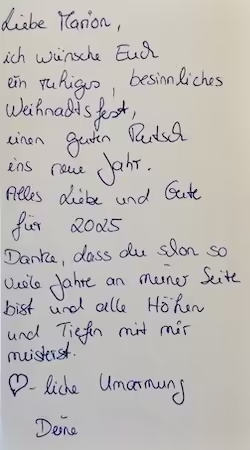 Liebe Marion,
ich wünsche Euch
ein ruhiges, besinnliches
Weihnachtsfest,
einen guten Rutsch
ins neue Jahr.
Alles Liebe und Gute
für 2025
Danke, dass du schon so
viele Jahre an meiner Seite
bist und alle Höhen
und Tiefen mit mir
meisterst.
♡-liche Umarmung
Deine